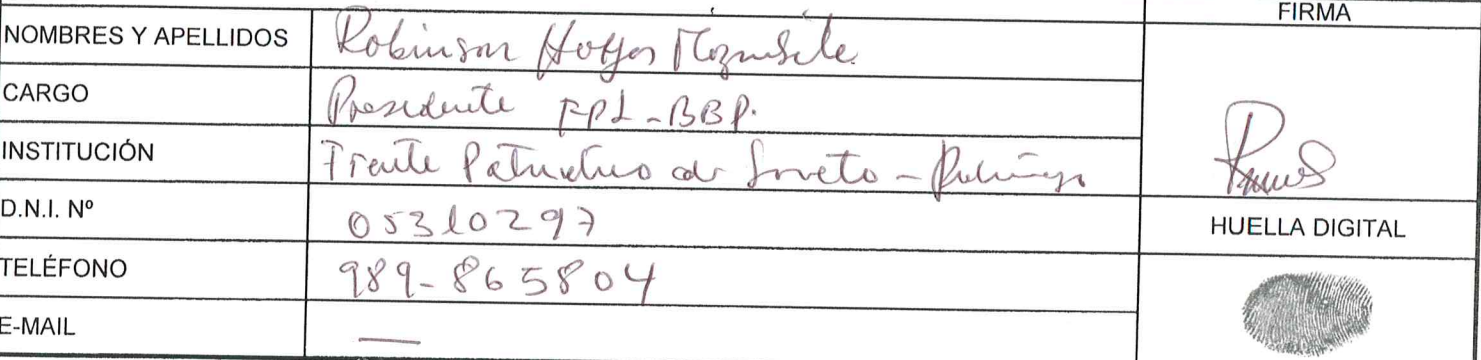 FIRMA
NOMBRES Y APELLIDOS Robinson
CARGO Presidente FPL-BBP.
INSTITUCIÓN Frente Patriótico de Loreto -
D.N.I. Nº 05310297
HUELLA DIGITAL
TELÉFONO 989-865804
E-MAIL —